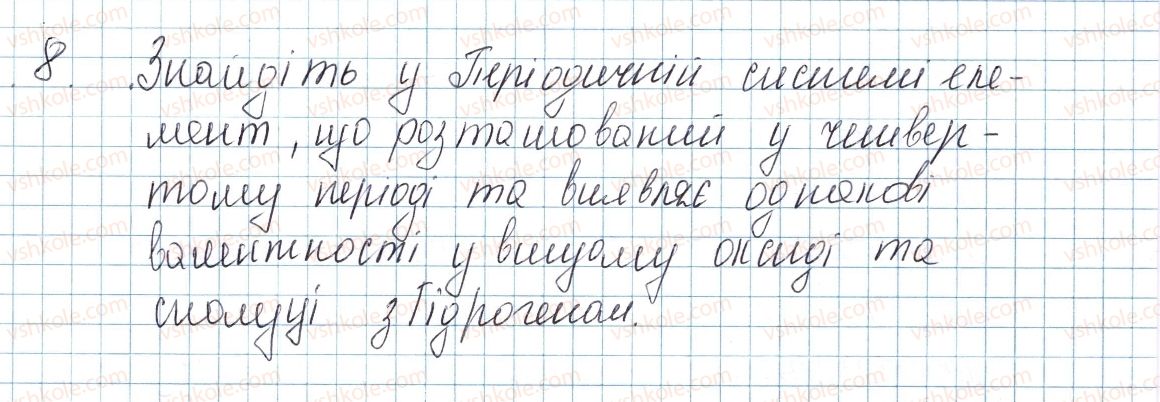 8. Знайдіть у Періодичній системі еле-
мент, що розташований у четвер-
тому періоді та виявляє однакові
валентності у вищому оксиді та
сполуці з Гідрогеном.